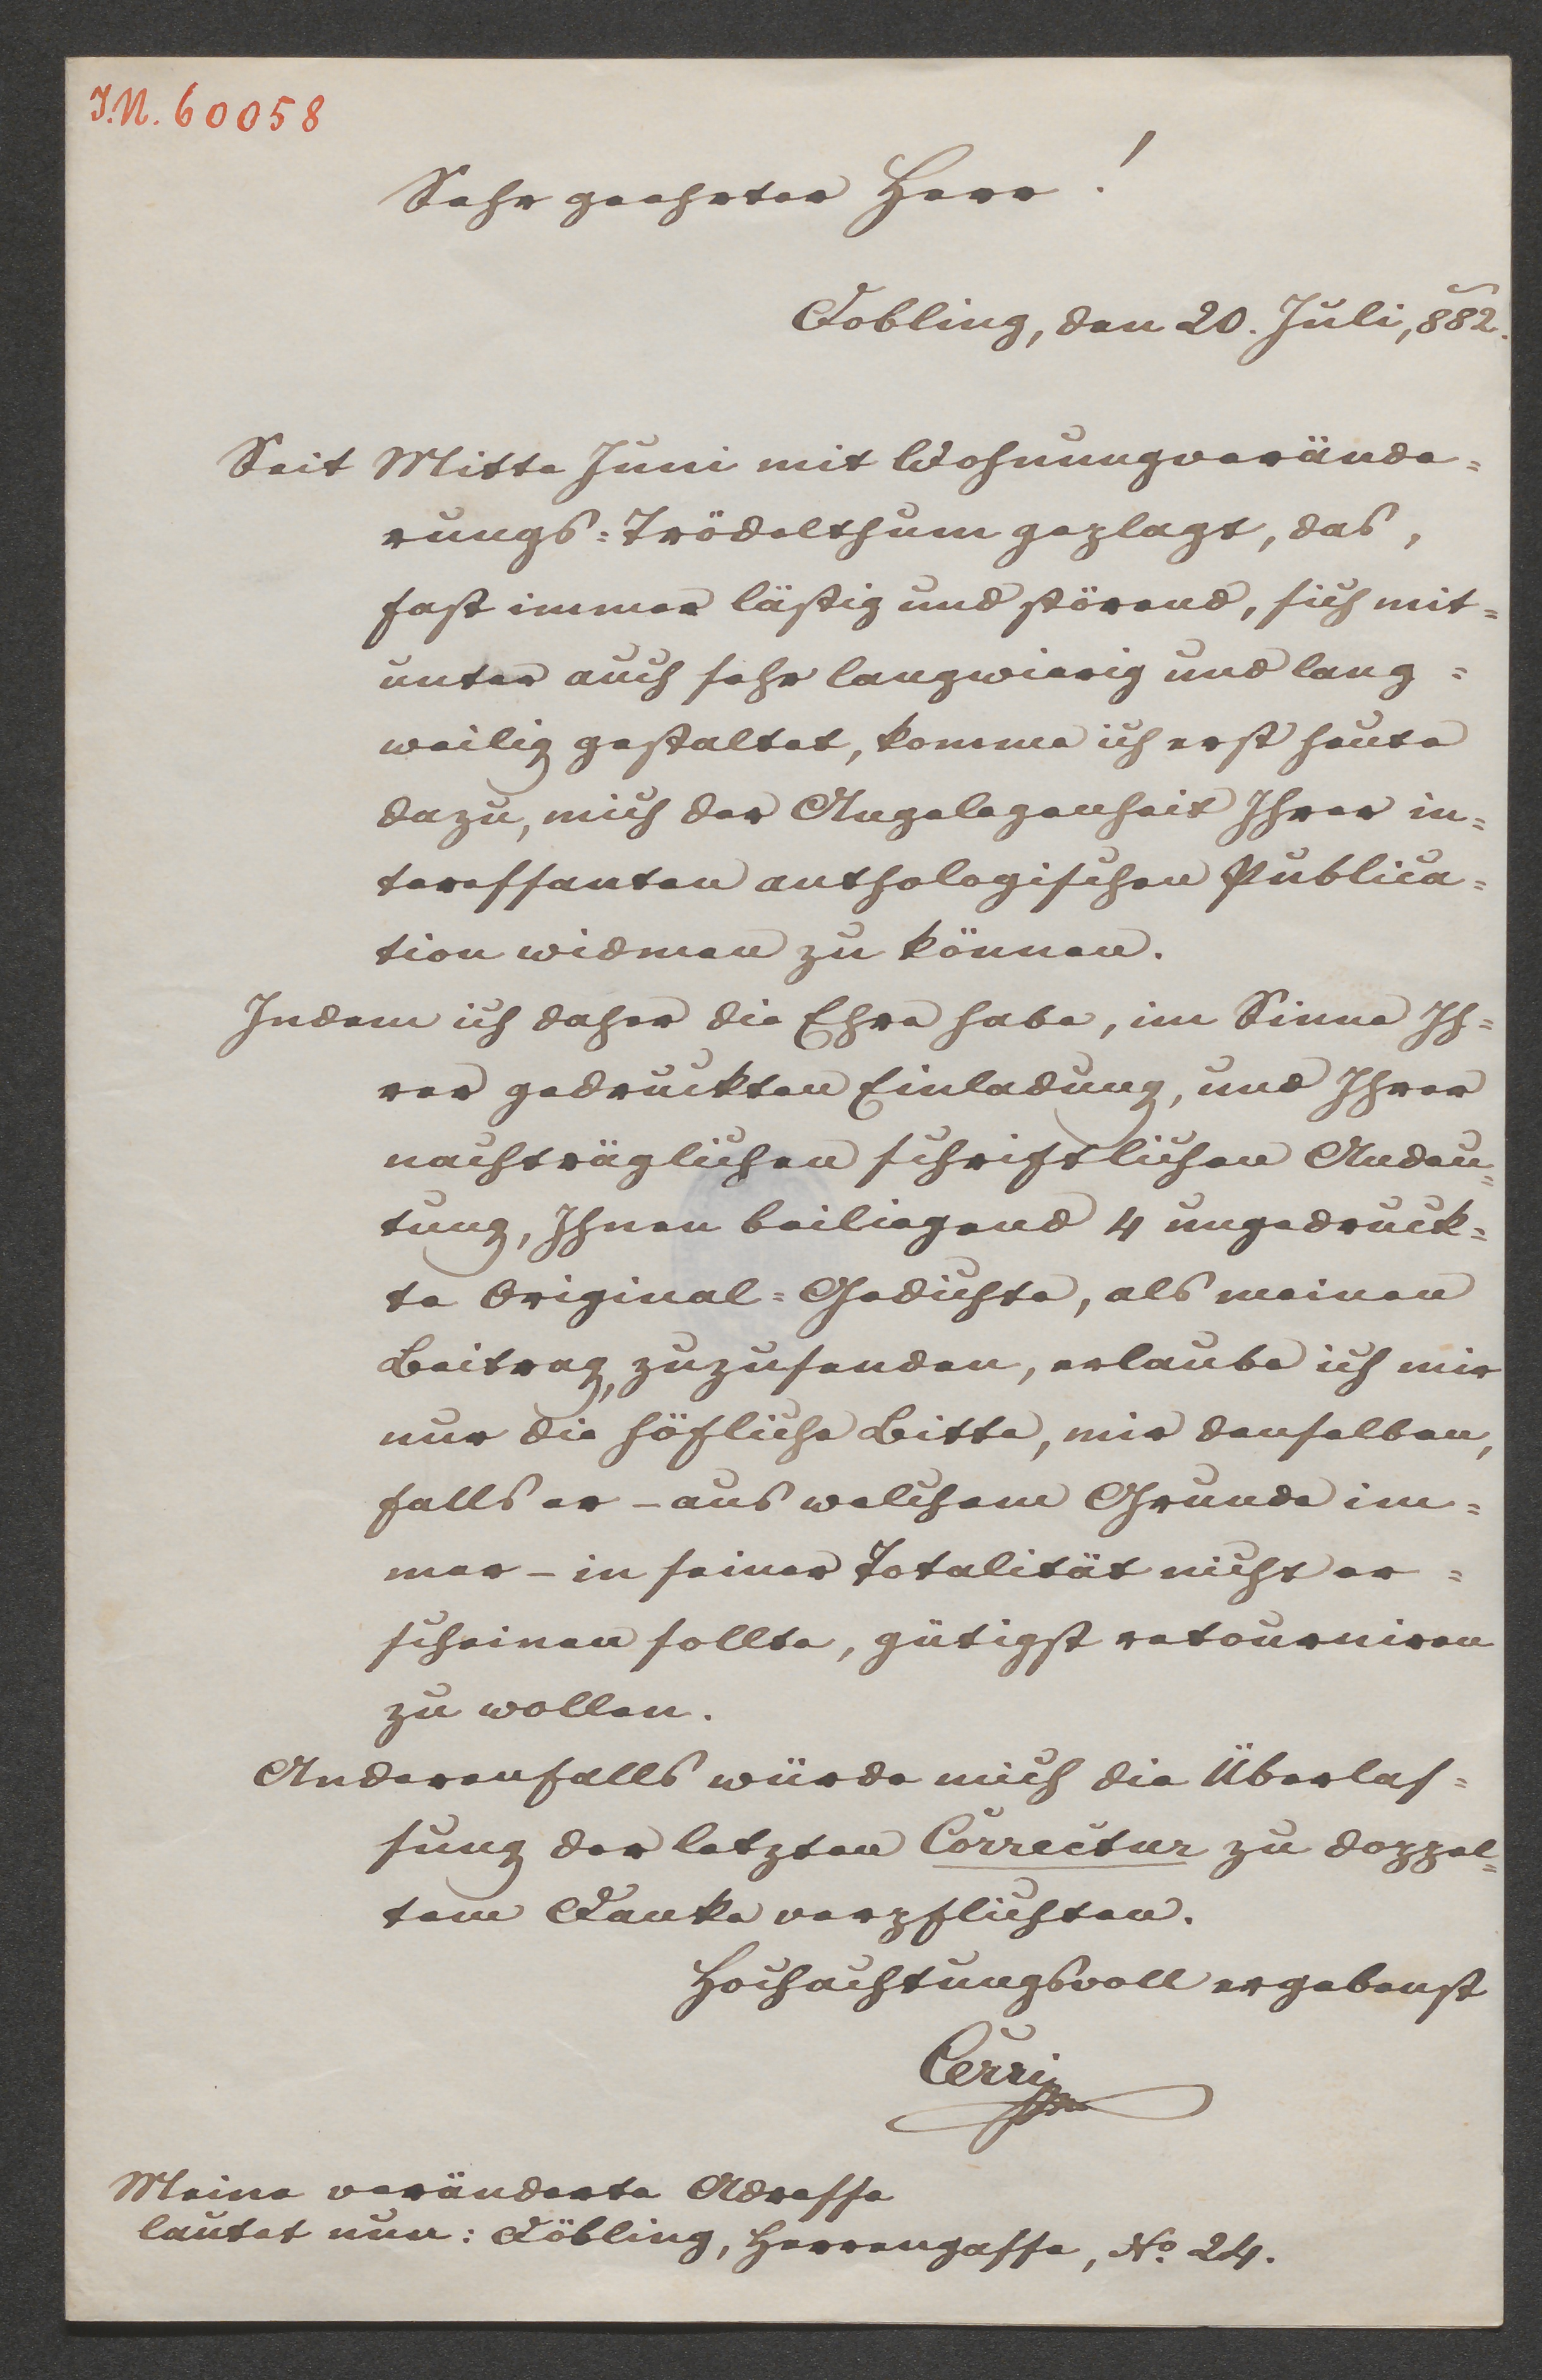 I.N. 60058
Sehr geehrter Herr!
Dobling, den 20. Juli, 882.
Seit Mitte Juni mit Wohnungverände=
rungs=Trödelthum geplagt, das,
fast immer lästig und störend, sich mit=
unter auch sehr langwierig und lang=
weilig gestaltet, komme ich erst heute
dazu, mich der Angelegenheit Ihrer in=
teressanten anthologischen Publica=
tion widmen zu können.
Indem ich daher die Ehre habe, im Sinne Ih=
rer gedruckten Einladung, und Ihrer
nachträglichen schriftlichen Andeu=
tung, Ihnen beiliegend 4 ungedruck=
te Original=Gedichte, als meinen
Beitrag, zuzusenden, erlaube ich mir
nur die höfliche Bitte, mir denselben,
falls er – aus welchem Grunde im=
mer – in seiner Totalität nicht er=
scheinen sollte, gütigst retourniren
zu wollen.
Anderenfalls würde mich die Überlas=
sung der letzten Correctur zu doppel=
tem Danke verpflichten.
Hochachtungsvoll ergebenst
Cerri
Meine veränderte Adresse
lautet nun: Döbling, Herrengasse, No. 24.